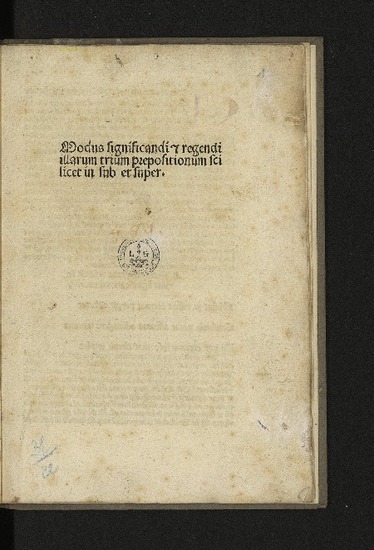 Modus significandi ⁊ regendi
illarum trium prepositionum sci
licet in sub et super.